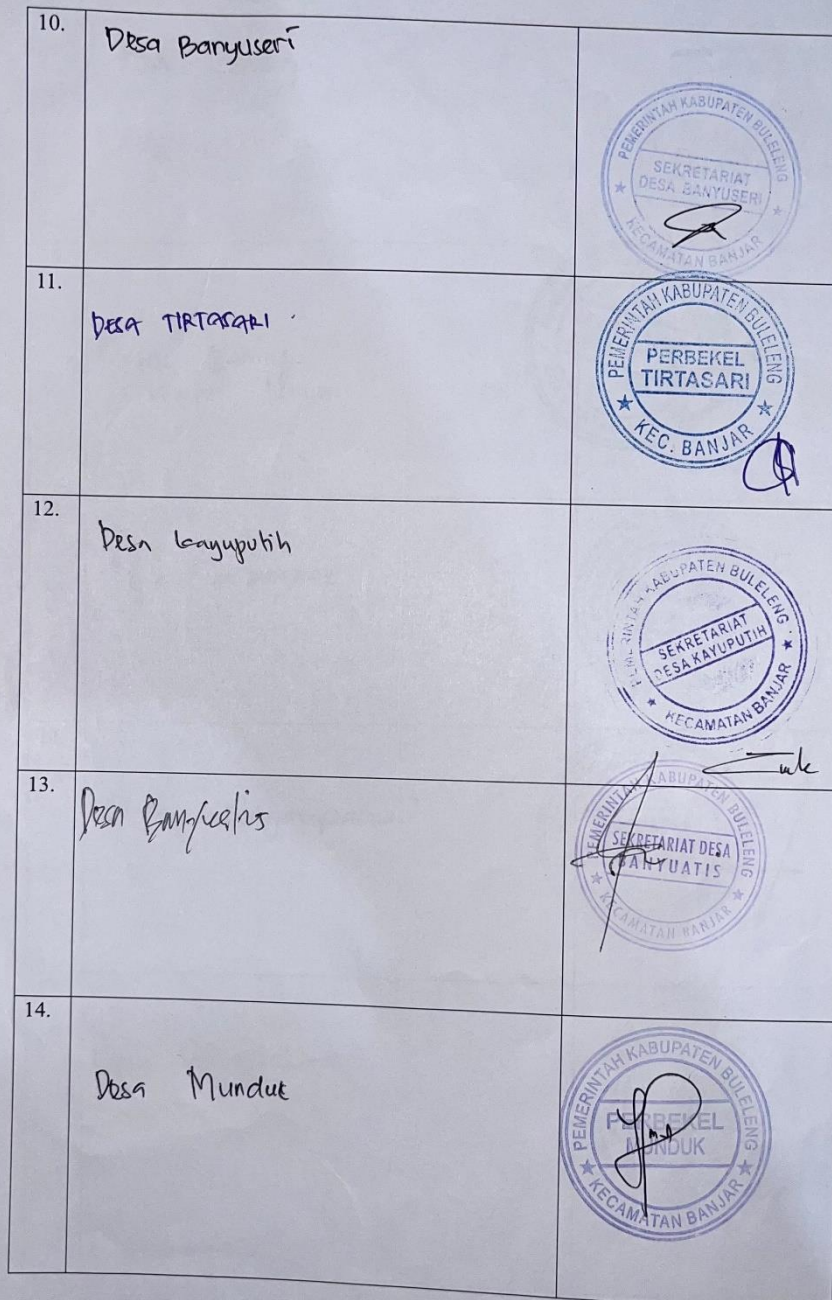 10.
Desa Banyuseri
PEMERINTAH KABUPATEN BULELENG
SEKRETARIAT
DESA BANYUSERI
KECAMATAN BANJAR
11.
DESA TIRTASARI
PEMERINTAH KABUPATEN BULELENG
PERBEKEL
TIRTASARI
KEC. BANJAR
12.
Desa Kayuputih
PEMERINTAH KABUPATEN BULELENG
SEKRETARIAT
DESA KAYUPUTIH
KECAMATAN BANJAR
13.
Desa Banyuatis
PEMERINTAH KABUPATEN BULELENG
SEKRETARIAT DESA
BANYUATIS
KECAMATAN BANJAR
14.
Desa Munduk
PEMERINTAH KABUPATEN BULELENG
PERBEKEL
MUNDUK
KECAMATAN BANJAR